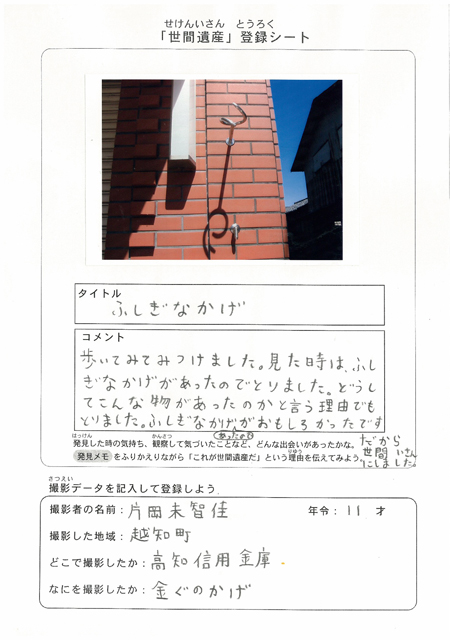 せけんいさん とうろく
「世間遺産」登録シート
タイトル
ふしぎなかげ
コメント
歩いてみてみつけました。見た時は、ふし
ぎなかげがあったのでとりました。どうし
てこんな物があったのかと言う理由でも
とりました。ふしぎなかげがおもしろかったです
はっけん かんさつ
発見した時の気持ち、観察して気づいたことなど、どんな出会いがあったかな。
りゆう
発見メモをふりかえりながら「これが世間遺産だ」という理由を伝えてみよう。
だから
世間いさん
にしました。
さつえい
撮影データを記入して登録しよう
撮影者の名前：片岡未智佳 年令：11 才
撮影した地域：越知町
どこで撮影したか：高知信用金庫
なにを撮影したか：金ぐのかげ